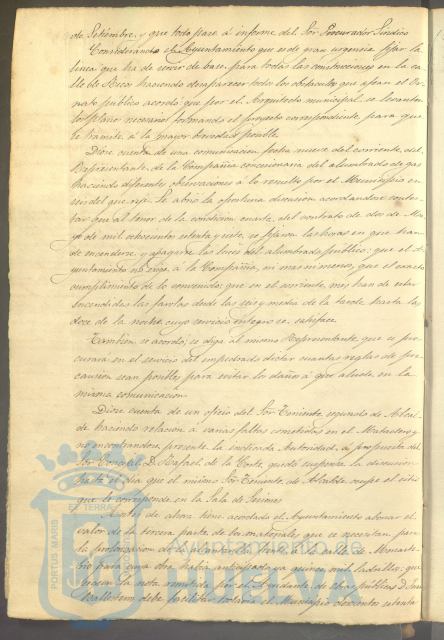 de Setiembre, y que todo pase á informe del Sor Procurador Síndico
Considerando el Ayuntamiento que es de gran urgencia fijar la
linea que ha de servir de base para todas las construcciones en la ca-
lle de haciendo desaparecer todos los obstaculos que afean el Or-
nato publico acordó que por el Arquitecto municipal se levanten
los planos necesarios formando el proyecto correspondiente para que
se tramite á la mayor brevedad posible
Dióse cuenta de una comunicacion fecha nueve del corriente, del
Representante de la Compañia concesionaria del alumbrado de gas
haciendo diferentes observaciones á lo resuelto por el Municipio en
seis del que rije. Se abrió la oportuna discusion acordandose contes-
tar que al tenor de la condicion cuarta del contrato de dos de Ma-
yo de mil ochocientos setenta y siete, se fijaron las horas en que han
de encenderse y apagarse las luces del alumbrado publico: que el A-
yuntamiento no exije á la Compañia, ni mas ni menos, que el exacto
cumplimiento de lo convenido: que en el corriente mes han de estar
encendidas las farolas desde las seis y media de la tarde hasta las
doce de la noche cuyo servicio integro se satisface
Tambien se acordó se diga al mismo Representante que se pro-
curará en el servicio del empedrado dictar cuantas reglas de pre-
caucion sean posibles para evitar los daños á que alude en la
misma comunicacion
Dióse cuenta de un oficio del Sor Teniente segundo de Alcal-
de haciendo relacion á varias faltas cometidas en el Matadero y
no encontrandose presente la indicada Autoridad, á propuesta del
Sor Concejal D. Rafael de la Torte, quedó suspensa la discusion
hasta el dia que el mismo Sor Teniente de Alcalde ocupe el sitio
que le corresponde en la Sala de Sesiones
Antes de ahora tiene acordado el Ayuntamiento abonar el
valor de la tercera parte de los materiales que se necesitan para
la prolongacion de la alcantarilla central de la calle de Monaste-
rio para cuya obra habia anticipado ya quince mil ladrillos; que
segun la nota remitida por el Ayudante de obras publicas D. Juan
debe facilitar todavia el Municipio trescientos setenta
Ayuntamiento de
PORTUS MARIS
ET TERRA